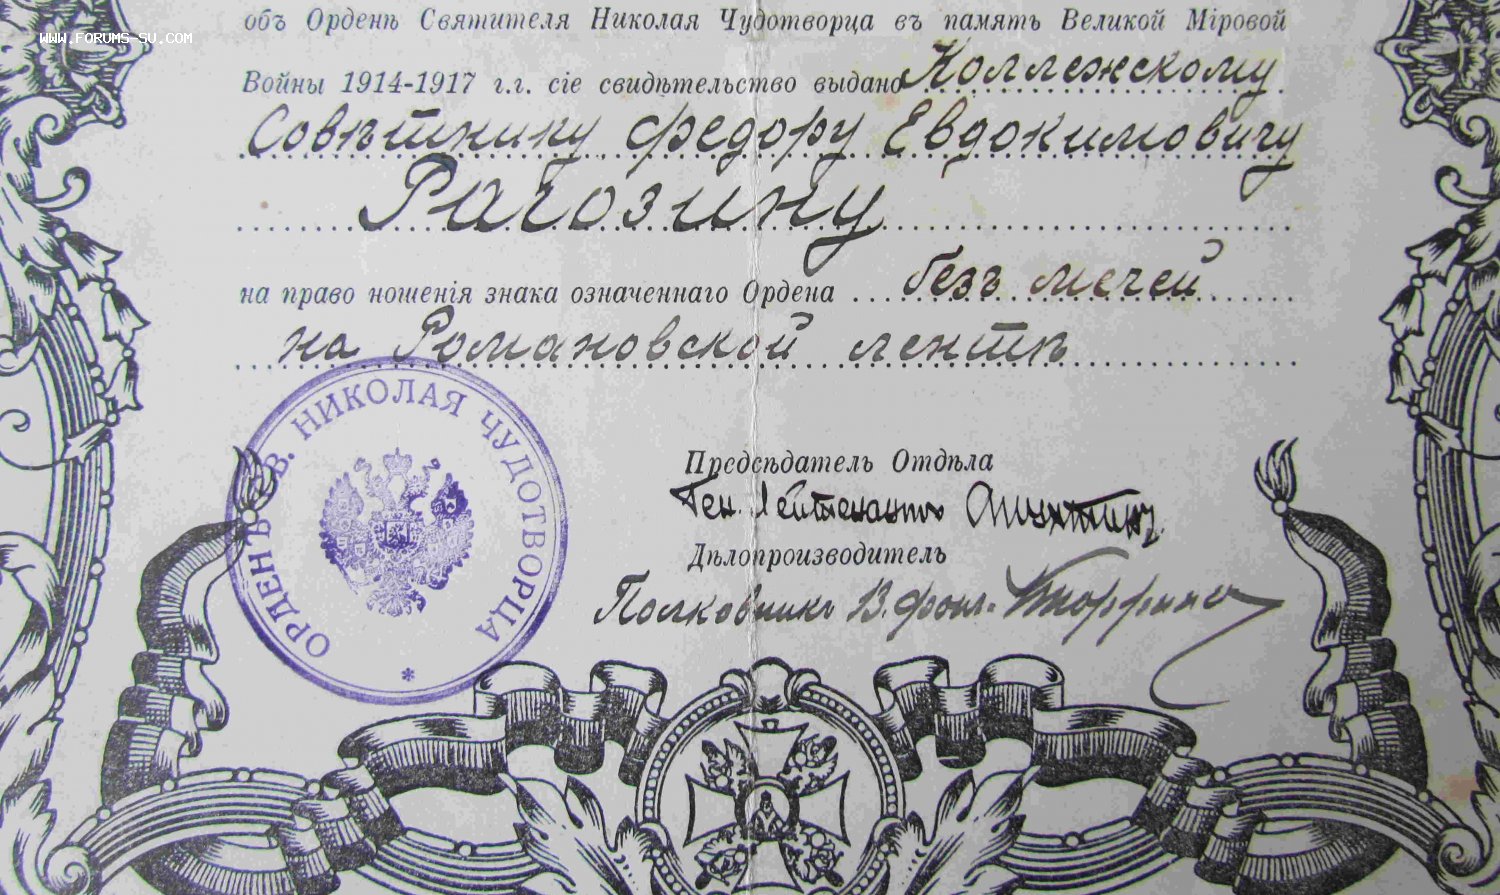 объ Орденѣ Святителя Николая Чудотворца въ память Великой Міровой
WWW.FORUMS-SU.COM
Войны 1914-1917 г.г. сіе свидѣтельство выдано Коллежскому
Совѣтнику Федору Евдокимовичу
Рагозину
на право ношенія знака означеннаго Ордена безъ мечей
на Романовской лентѣ
ОРДЕНЪ СВ. НИКОЛАЯ ЧУДОТВОРЦА *
Предсѣдатель Отдѣла
Ген. Лейтенантъ Апухтинъ
Дѣлопроизводитель
Полковникъ В. фонъ-